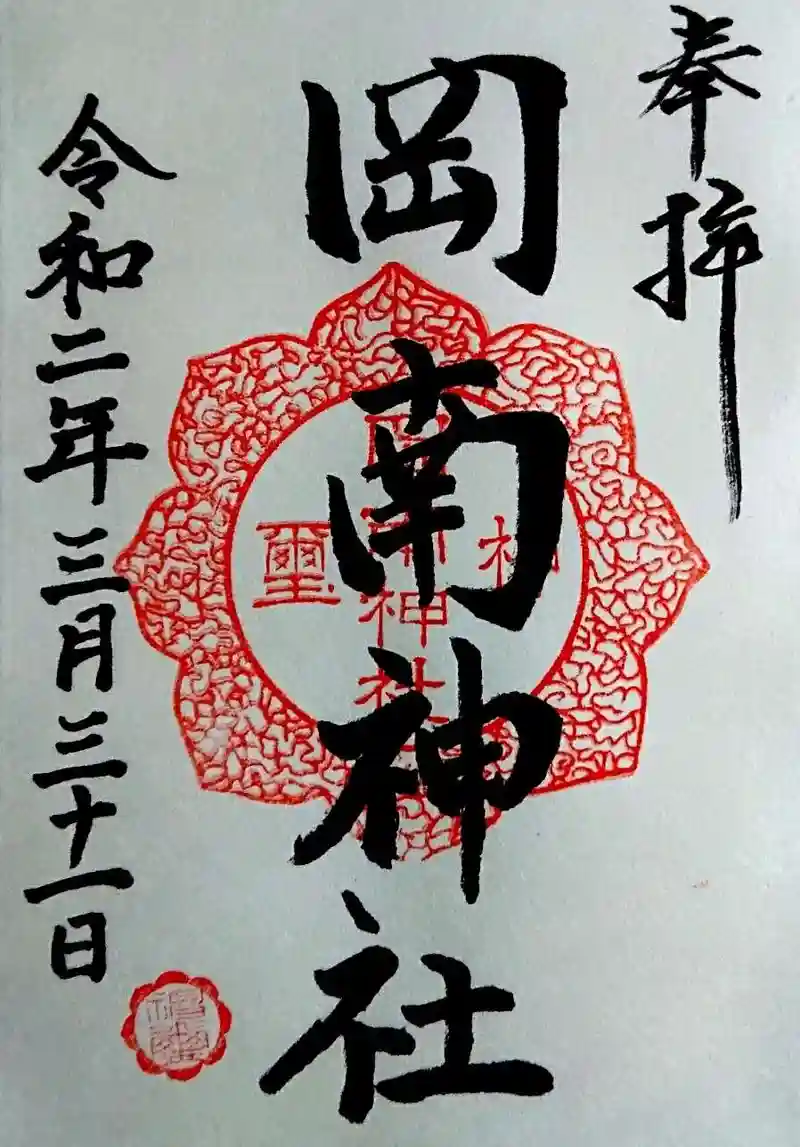 奉拝
岡南神社
岡南神社
神
璽
令和二年三月三十一日